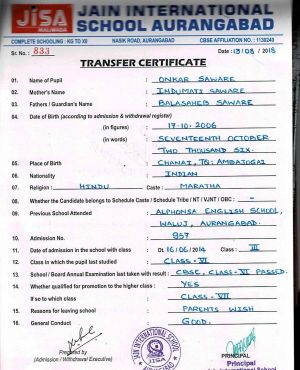 JiSA
MALIWADA
JAIN INTERNATIONAL
SCHOOL AURANGABAD
COMPLETE SCHOOLING : KG TO XII NASIK ROAD, AURANGABAD CBSE AFFILIATION NO. : 1130240
Sr. No.: 833 Date : 13/08/2018
TRANSFER CERTIFICATE
01. Name of Pupil : ONKAR SAWARE
02. Mother's Name : INDUMATI SAWARE
03. Fathers / Guardian's Name : BALASAHEB SAWARE
04. Date of Birth (according to admission & withdrawal register)
(in figures) : 17-10-2006
(in words) : SEVENTEENTH OCTOBER
TWO THOUSAND SIX.
05. Place of Birth : CHANAI, TQ: AMBAJOGAI
06. Nationality : INDIAN
07. Religion : HINDU Caste : MARATHA
08. Whether the Candidate belongs to Schedule Caste / Schedule Tribe / NT / VJNT / OBC : -
09. Previous School Attended : ALPHONSA ENGLISH SCHOOL,
WALUJ, AURANGABAD.
10. Admission No. : 957
11. Date of admission in the school with class : Dt. 16/06/2014 Class : III
12. Class in which the pupil last studied : CLASS-VI
13. School / Board Annual Examination last taken with result : CBSE, CLASS-VI PASSED.
14. Whether qualified for promotion to the higher class : YES
If so to which class : CLASS-VII
15. Reasons for leaving school : PARENTS WISH
16. General Conduct : GOOD.
Prepared by
(Admission / Withdrawal Executive)
JAIN INTERNATIONAL SCHOOL
JISA
AURANGABAD
PRINCIPAL
Principal
Jain International School